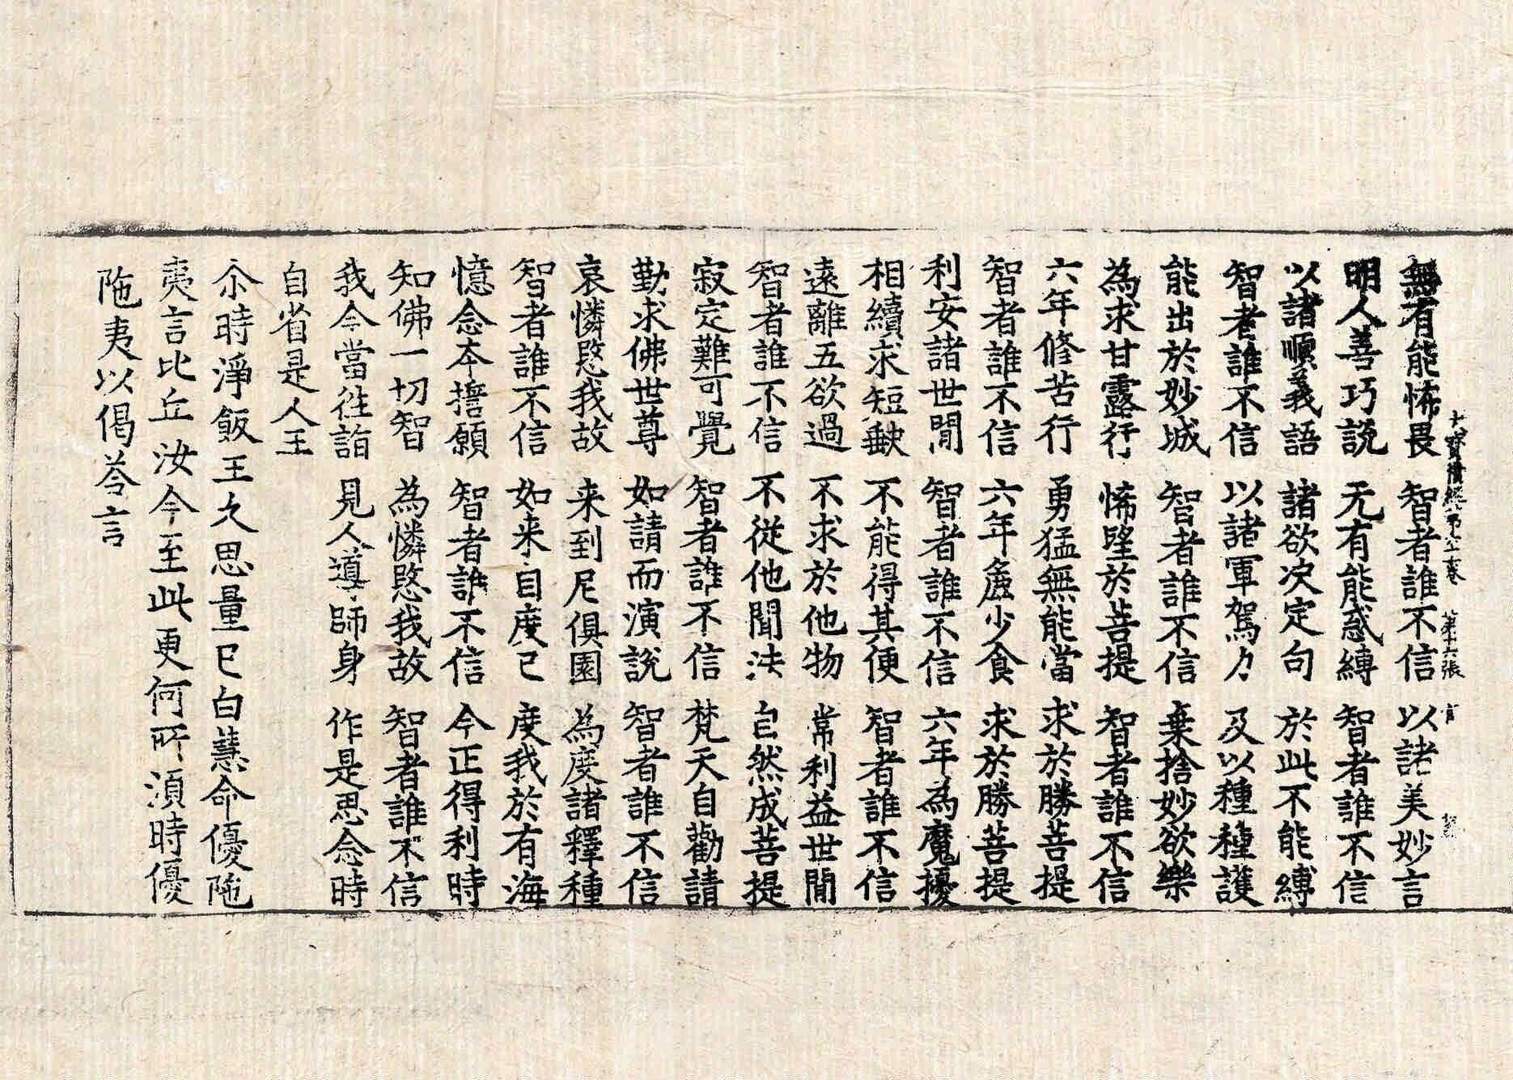 大寶積經第六十二卷 第十六張 官
無有能怖畏 智者誰不信 以諸美妙言
明人善巧説 无有能惑縛 智者誰不信
以諸順義語 諸欲决定句 於此不能縛
智者誰不信 以諸軍駕力 及以種種護
能出於妙城 智者誰不信 棄捨妙欲樂
為求甘露行 悕望於菩提 智者誰不信
六年修苦行 勇猛無能當 求於勝菩提
智者誰不信 六年麁少食 求於勝菩提
利安諸世間 智者誰不信 六年為魔擾
相續求短缺 不能得其便 智者誰不信
遠離五欲過 不求於他物 常利益世間
智者誰不信 不從他聞法 自然成菩提
寂定難可覺 智者誰不信 梵天自勸請
勤求佛世尊 如請而演説 智者誰不信
哀憐愍我故 来到尼俱園 為度諸釋種
智者誰不信 如来自度已 度我於有海
憶念夲擔願 智者誰不信 今正得利時
知佛一切智 為憐愍我故 智者誰不信
我今當往詣 見人導師身 作是思念時
自省是人王
尒時淨飯王久思量已白慧命優陁
夷言比丘汝今至此更何所湏時優
陁夷以偈荅言